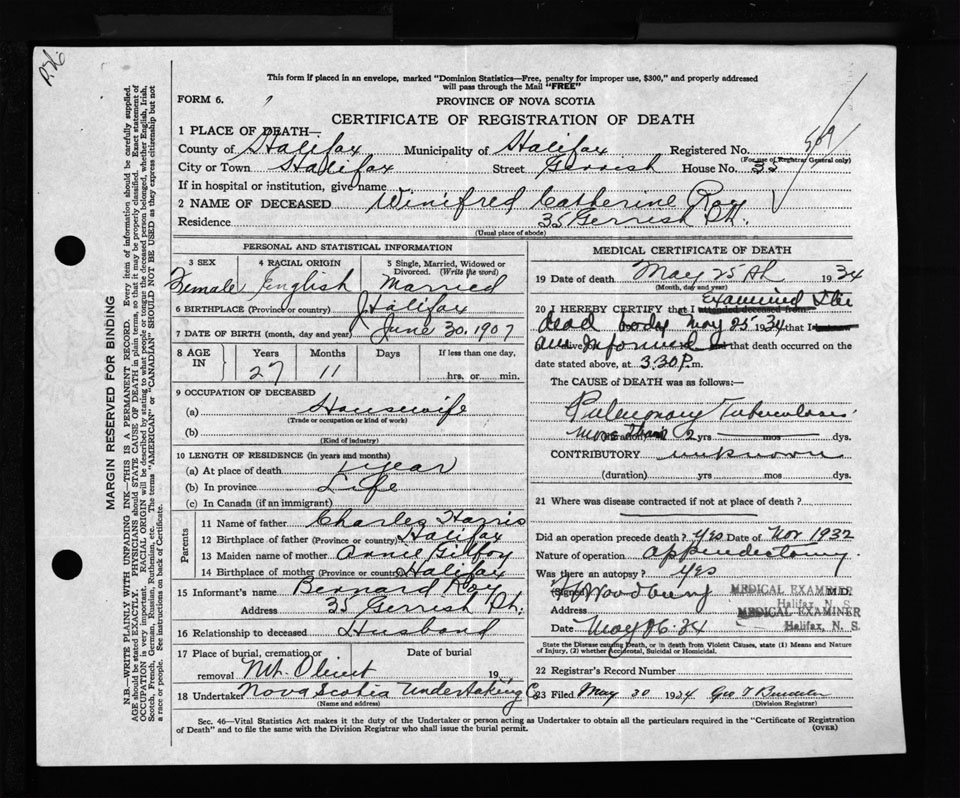 P.H.6
This form if placed in an envelope, marked "Dominion Statistics—Free, penalty for improper use, $300," and properly addressed
will pass through the Mail "FREE"
FORM 6.
PROVINCE OF NOVA SCOTIA
CERTIFICATE OF REGISTRATION OF DEATH
1 PLACE OF DEATH—
County of Halifax Municipality of Halifax Registered No. 509
(For use of Registrar General only)
City or Town Halifax Street Gerrish House No. 35
If in hospital or institution, give name
2 NAME OF DECEASED Winifred Catherine Ray
Residence 35 Gerrish St.
(Usual place of abode)
PERSONAL AND STATISTICAL INFORMATION
3 SEX 4 RACIAL ORIGIN 5 Single, Married, Widowed or
Divorced. (Write the word)
Female English Married
6 BIRTHPLACE (Province or country) Halifax
7 DATE OF BIRTH (month, day and year) June 30, 1907
8 AGE IN Years Months Days If less than one day,
27 11 hrs. or min.
9 OCCUPATION OF DECEASED
(a) Housewife
(Trade or occupation or kind of work)
(b)
(Kind of industry)
10 LENGTH OF RESIDENCE (in years and months)
(a) At place of death 1 year
(b) In province Life
(c) In Canada (if an immigrant)
Parents
11 Name of father Charles Harris
12 Birthplace of father (Province or country) Halifax
13 Maiden name of mother Annie Gilfoy
14 Birthplace of mother (Province or country) Halifax
15 Informant's name Bernard Ray
Address 35 Gerrish St.
16 Relationship to deceased Husband
17 Place of burial, cremation or Date of burial
removal Mt. Olivet 19
18 Undertaker Nova Scotia Undertaking Co
(Name and address)
MEDICAL CERTIFICATE OF DEATH
19 Date of death May 25th 1934
(Month, day and year)
20 I HEREBY CERTIFY that I attended deceased from Examined the
dead body May 25" 1934 that I
and Informed that death occurred on the
date stated above, at 3.30 P.m.
The CAUSE of DEATH was as follows:—
Pulmonary Tuberculosis
more than 2 yrs mos dys.
CONTRIBUTORY unknown
(duration) yrs. mos. dys.
21 Where was disease contracted if not at place of death?
Did an operation precede death? Yes Date of Nov 1932
Nature of operation appendectomy.
Was there an autopsy? Yes
(Signed) Woodbury M.D.
MEDICAL EXAMINER
Halifax, N. S.
Address MEDICAL EXAMINER
Halifax, N. S.
Date May 26. 34
State the Disease causing Death, or in death from Violent Causes, state (1) Means and Nature
of Injury, (2) whether Accidental, Suicidal or Homicidal.
22 Registrar's Record Number
23 Filed May 30 1934 Geo T
(Division Registrar)
Sec. 46—Vital Statistics Act makes it the duty of the Undertaker or person acting as Undertaker to obtain all the particulars required in the "Certificate of Registration
of Death" and to file the same with the Division Registrar who shall issue the burial permit.
(OVER)
MARGIN RESERVED FOR BINDING
N.B.—WRITE PLAINLY WITH UNFADING INK—THIS IS A PERMANENT RECORD. Every item of information should be carefully supplied.
AGE should be stated EXACTLY. PHYSICIANS should STATE CAUSE OF DEATH in plain terms, so that it may be properly classified. Exact statement of
OCCUPATION is very important. RACIAL ORIGIN will be described by stating to what people or tongue the deceased person belonged, whether English, Irish,
Scotch, French, German, Russian, Ruthenian, etc. The terms "AMERICAN" or "CANADIAN" SHOULD NOT BE USED as they express citizenship but not
a race or people. See instructions on back of Certificate.